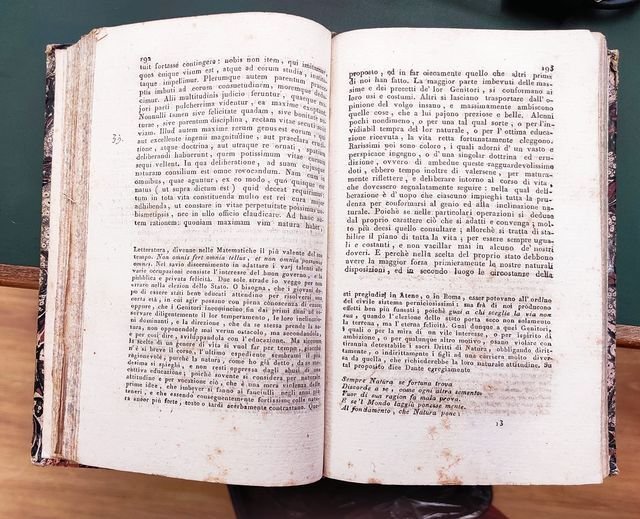 192
tuit fortasse contingere: nobis non item, qui imitamur,
quos cuique visum est, atque ad eorum studia, institu-
taque impellimur. Plerumque autem parentum praece-
ptis imbuti ad eorum consuetudinem, moremque dedu-
cimur. Alii multitudinis judicio feruntur, quaeque ma-
jori parti pulcherrima videntur, ea maxime exoptant.
Nonnulli tamen sive felicitate quadam, sive bonitate na-
turae, sive parentum disciplina, rectam vitae secuti sunt
viam. Illud autem maxime rarum genus est eorum, qui
aut excellente ingenii magnitudine, aut praeclara erudi-
tione, atque doctrina, aut utraque re ornati, spatium
deliberandi habuerunt, quem potissimum vitae cursum
sequi vellent. In qua deliberatione, ad suam cujusque
naturam consilium est omne revocandum. Nam cum in
omnibus, quae aguntur, ex eo modo, quo quisque est
natus (ut supra dictum est) quid deceat requirimus:
tum in tota vita constituenda multo est rei cura major
adhibenda, ut constare in vitae perpetuitate possimus no-
bismetipsis, nec in ullo officio claudicare. Ad hanc au-
tem rationem quoniam maximam vim natura habet,
Letteratura, divenne nelle Matematiche il più valente del suo
tempo. Non omnis fert omnia tellus, et non omnia possumus
omnes. Nel savio discernimento in adattare i varj talenti alle
varie occupazioni consiste l'interesse del buon governo, e la
pubblica e privata felicità. Due sole strade io veggo per ben
riuscire nella elezion dello Stato. O bisogna, che i giovani dopo
di essere stati bene educati attendino per risolversi una
certa età, in cui agir possano con piena conoscenza di cause,
oppure, che i Genitori incomincino fin dai primi anni ad os-
servare diligentemente il lor temperamento, le loro inclinazio-
ni dominanti, e la direzione, che da se stessa prende la na-
tura, non opponendole mai verun ostacolo, ma secondandola,
e per così dire, sviluppandola con l'educazione. Ma siccome
in sì
ragionevole, poichè la natura, come ho già detto, da se me-
desima si spieghi, e non resti oppressa dagli abusi di una
cattiva educazione; poichè sovente si considera per naturale
attitudine e per vocazione ciò, che è una mera violenza delle
prime idee, che imbever si fanno ai fanciulli negli anni più
teneri, e che essendo conseguentemente fortissime colla natu-
ra ancor più forte, tosto o tardi acerbamente contrastano. Que-
193
proposto, ed in far ciecamente quello che altri prima
di noi han fatto. La maggior parte imbevuti delle mas-
sime e dei precetti de' lor Genitori, si conformano ai
loro usi e costumi. Altri si lasciano trasportare dall'o-
pinione del volgo insano, e massimamente ambiscono
quelle cose, che a lui pajono preziose e belle. Alcuni
pochi nondimeno, o per una tal qual sorte, o per l'in-
vidiabil tempra del lor naturale, o per l'ottima educa-
zione ricevuta, la vita retta fortunatamente eleggono.
Rarissimi poi sono coloro, i quali adorni d'un vasto e
perspicace ingegno, o d'una singolar dottrina ed eru-
dizione, ovvero di ambedue queste ragguardevolissime
doti, ebbero tempo inoltre di valersene, per matura-
mente riflettere, e deliberare intorno al corso di vita,
che dovessero segnalatamente seguire: nella qual deli-
berazione è d'uopo che ciascuno impieghi tutta la pru-
denza per conformarsi al genio ed alla inclinazione na-
turale. Poichè se nelle particolari operazioni si deduce
dal proprio carattere ciò che si adatti e convenga, mol-
to più decsi quello consultare; allorchè si tratta di sta-
bilire il piano di tutta la vita, per essere sempre ugua-
li e costanti, e non vacillar mai in alcuno de' nostri
doveri. E perchè nella scelta del proprio stato debbono
avere la maggior forza primieramente le nostre naturali
disposizioni, ed in secondo luogo le circostanze della
sti pregiudizj in Atene, o in Roma, esser potevano all'ordine
del civile sistema perniciosissimi; ma frà di noi producono
effetti ben più funesti; poichè guai a chi sceglie la via non
sua, quando l'elezione dello stato porta seco non solamente
la terrena, ma l'eterna felicità. Guai dunque a quei Genitori,
i quali o per la mira di un vile interesse, o per ispirito di
ambizione, o per qualunque altro motivo, osano violare con
tirannia detestabile i sacri Diritti di Natura, obbligando diritta-
mente, o indirittamente i figli ad una carriera molto diver-
sa da quella, che richiederebbe la loro naturale attitudine. Su
tal proposito dice Dante egregiamente
Sempre Natura se fortuna trova
Discorde a se, come ogni altra semente
Fuor di sua ragion fa mala prova.
E se'l Mondo laggiù ponesse mente
Al fondamento, che Natura pone;
13